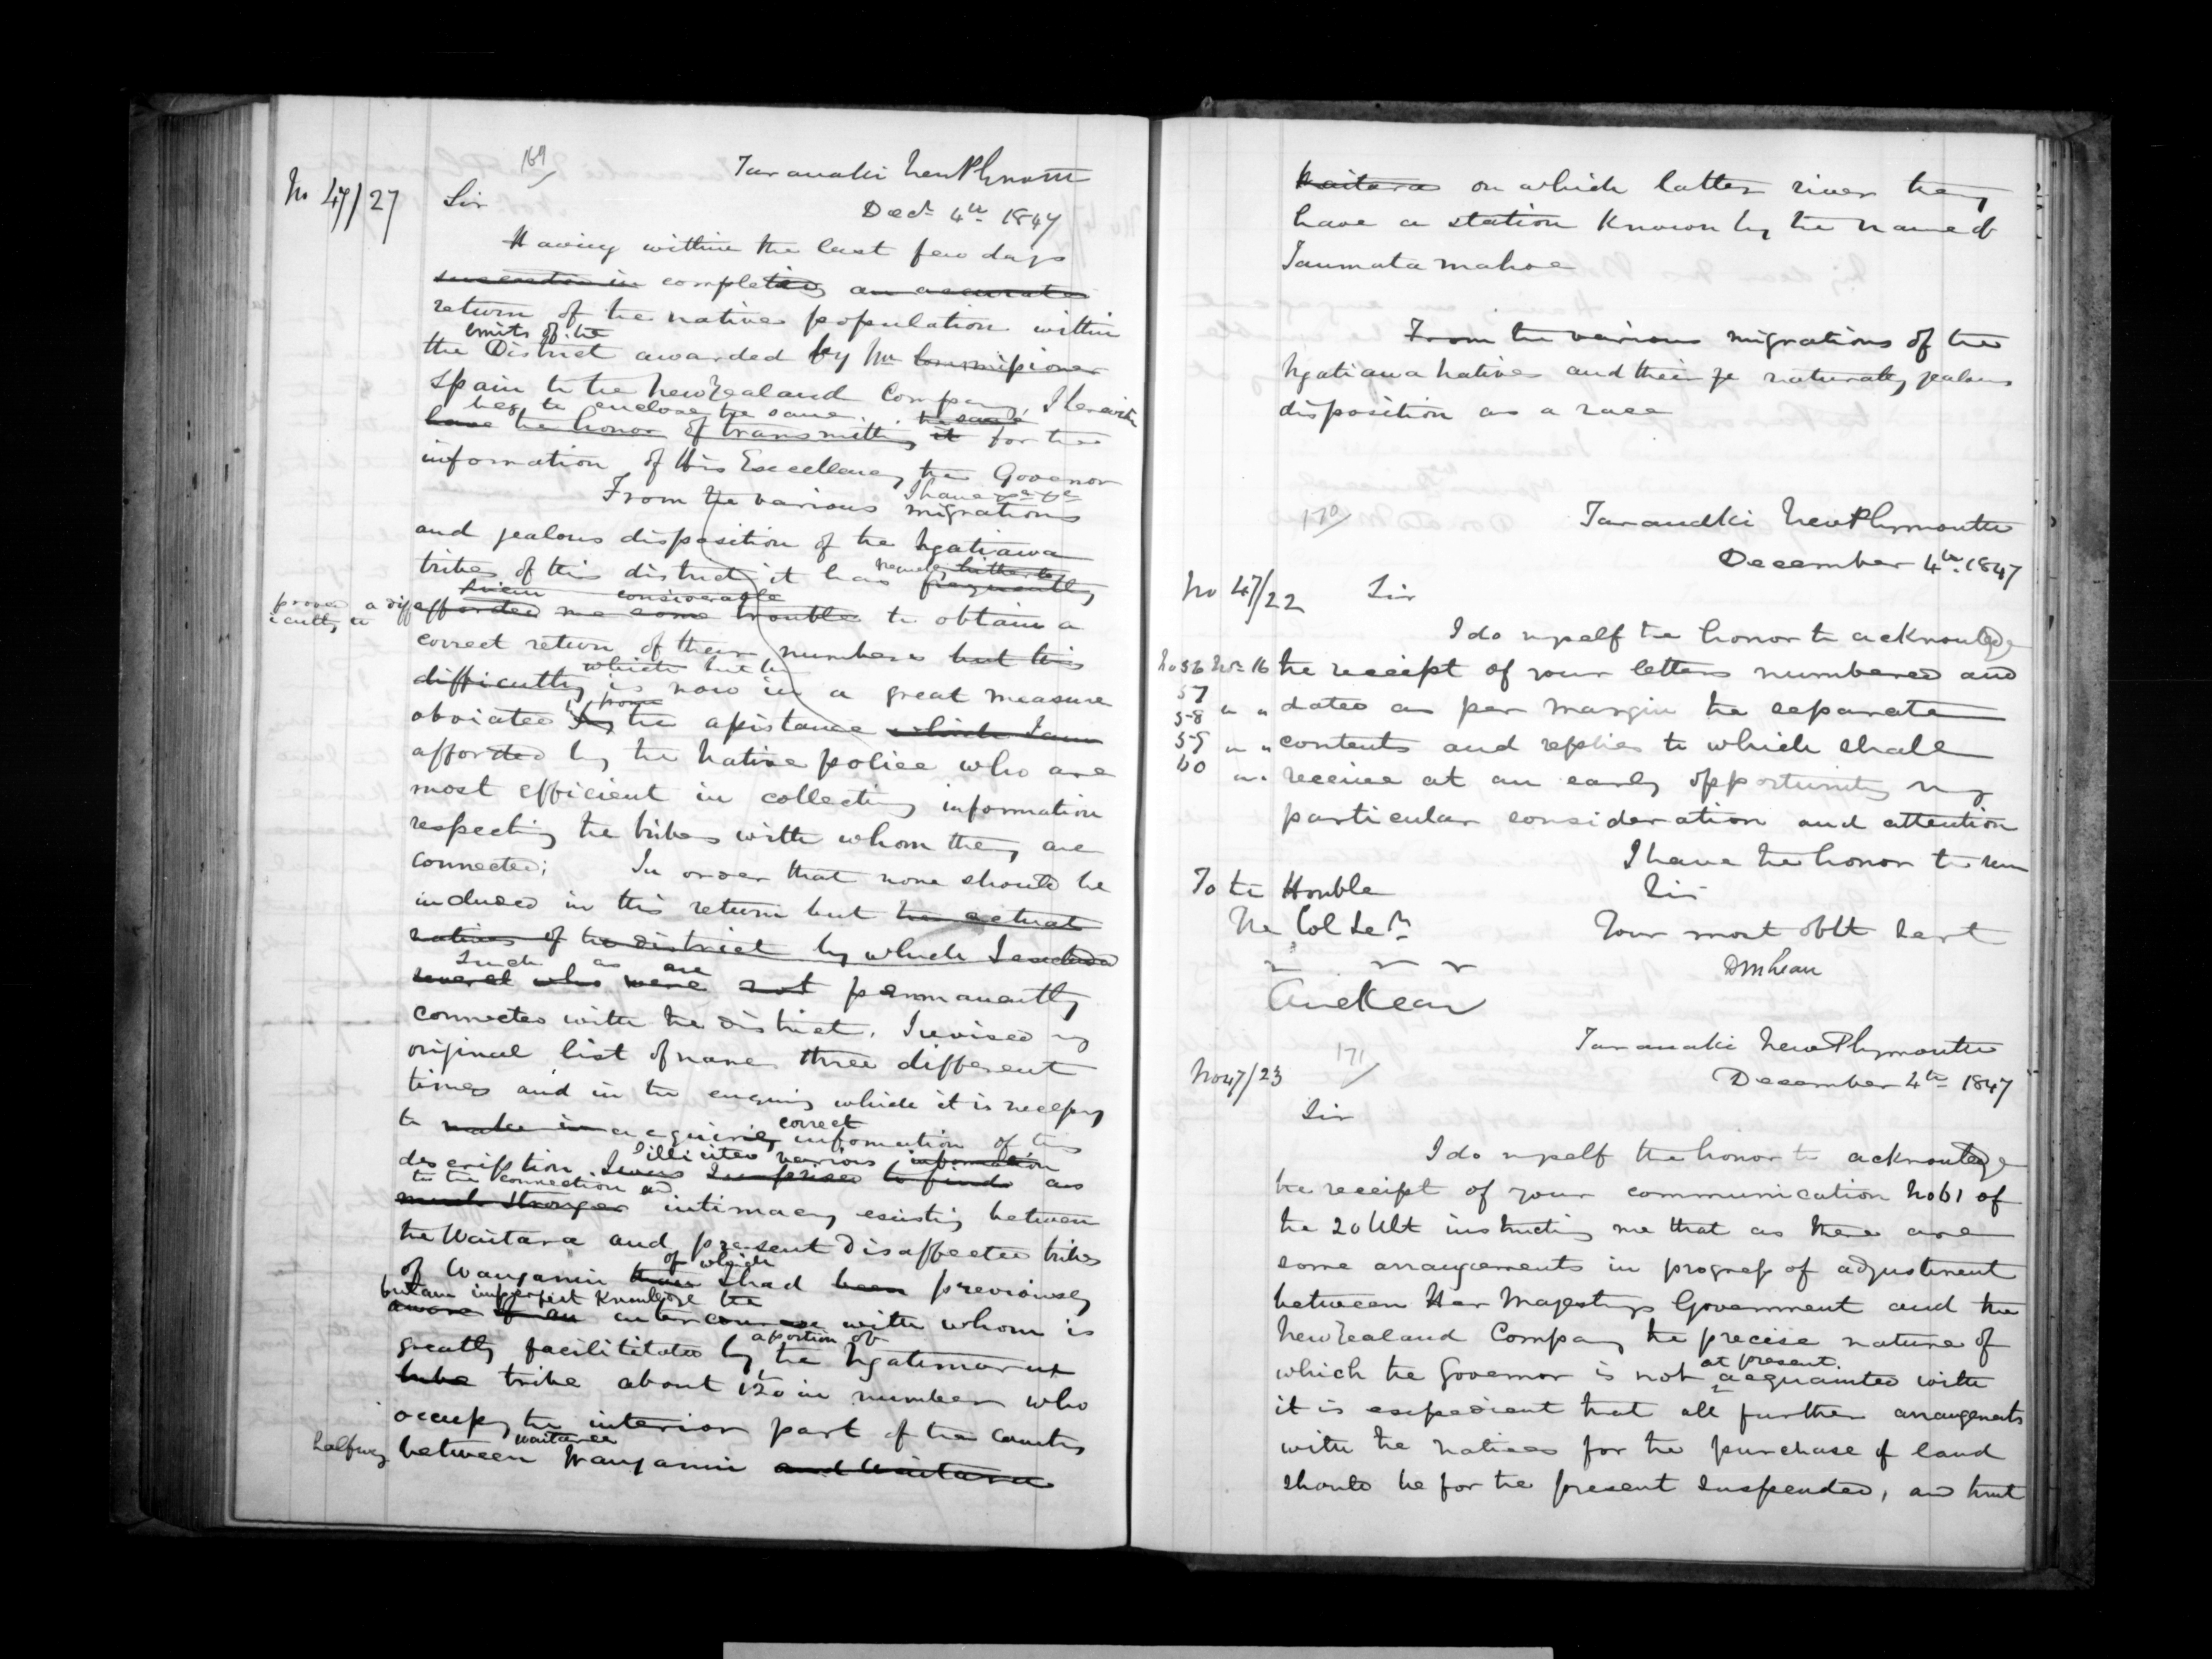 169
Taranaki New Plymouth
No 47/27 Sir
Decr 4th 1847
Having within the last few days
succeeded in completing an accurate
return of the native population within
limits of the
the District awarded by Mr Commissioner
Spain to the New Zealand Company, I herewith
beg to enclose the same. the same
have the honor of transmitting it for the
information of His Excellency the Governor
I have &c &c
From the various migrations
and jealous disposition of the Ngatiawa
tribes of this district it has hitherto frequently
given considerable
proved a diff
iculty to
afforded me some trouble to obtain a
correct return of their numbers but this
which
difficulty is now in a great measure
from
obviated by the assistance which I am
afforded by the Native police who are
most efficient in collecting information
respecting the tribes with whom they are
connected; In order that none should be
included in this return but the actual
natives of the district by which I exclude
such as are
several who were not permanently
connected with the district, I revised my
original list of names three different
times and in the enquiry which it is necessary
correct
to make in acquiring information of this
I illicited various information
description I was surprised to find as
to the connection and
much stronger intimacy existing between
the Waitara and present disaffected tribes
of which
of Wanganui than I had been previously
but an imperfect knowledge the
aware of an intercourse with whom is
a portion of
greatly facilititated by the Ngatimaru
tribe tribe about 120 in number who
occupy the interior part of the country
waitara
halfway between Wanganui and Waitara
Waitara on which latter river they
have a station known by the name of
Taumatamahoe
From the various migrations of the
Ngatiawa natives and their je naturally jealous
disposition as a race
170
Taranaki New Plymouth
December 4th 1847
No 47/22 Sir
I do myself the honor to acknowledge
No 56 Nov 16 the receipt of your letters numbered and
57
58 " " dated as per margin the separate
59 " " contents and replies to which shall
60 " " receive at an early opportunity my
particular consideration and attention
I have the honor to
To the Honble Sir
The Col Secy Your most obt Servt
DMcLean
Auckland
171
Taranaki New Plymouth
No 47/23 December 4th 1847
Sir
I do myself the honor to acknowledge
the receipt of your communication No 61 of
the 20 Ult instructing me that as there are
some arrangements in progress of adjustment
between Her Majestys Government and the
New Zealand Company the precise nature of
at present.
which the Governor is not acquainted with
it is expedient that all further arrangements
with the natives for the purchase of land
should be for the present suspended, and that